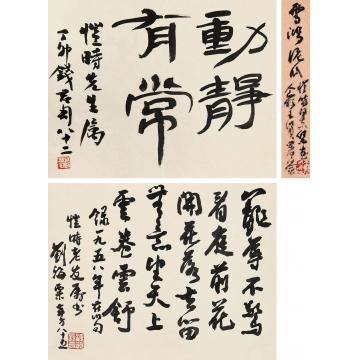 動靜
有常
愷時先生属
丁卯錢君匋八十二
雪鴻泥爪
寵辱不驚
看庭前花
開花落去留
無意望天上
雲卷雲舒
錄一九五八年在句
愷時老友屬書
劉海粟年方八十五